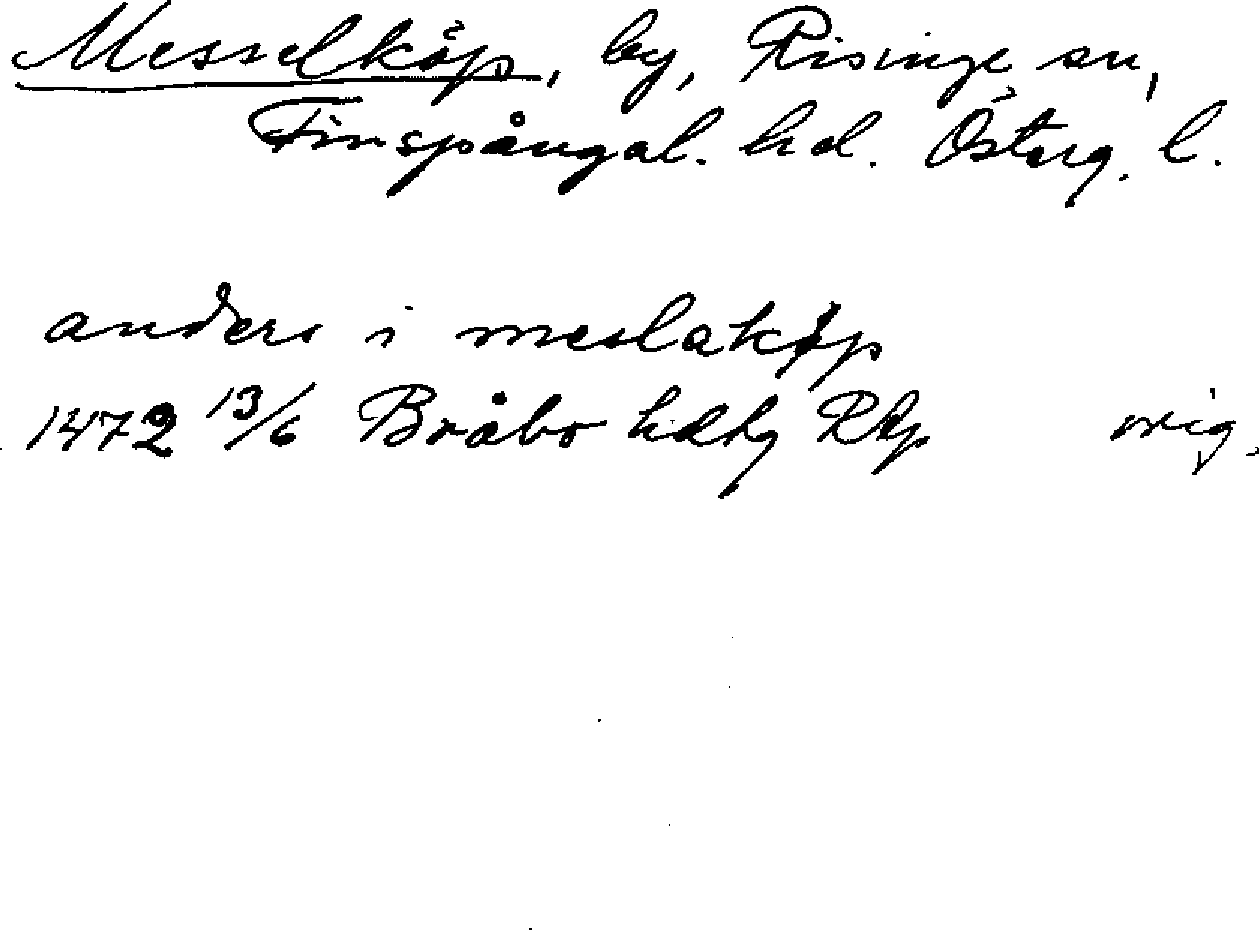 Messelköp, by, Risinge sn,
Finspångal. hd. Österg. l.
anders i meslakøp
1472 13/6 Bråbo hdtg RAp orig.